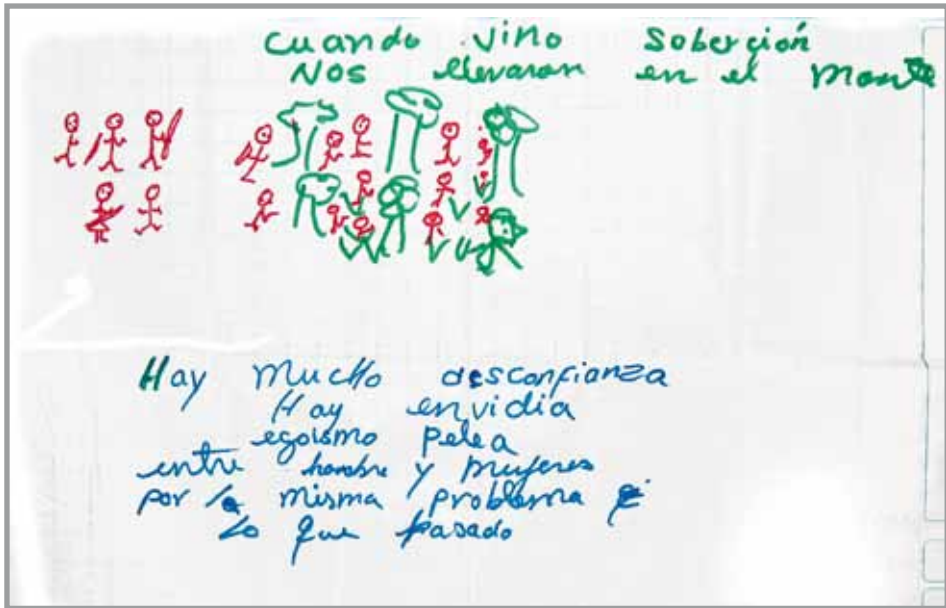 Cuando vino Soberción
Nos llevaron en el Monte
Hay Mucho desconfianza
Hay envidia
egoismo pelea
entre hombre y mujeres
por la misma problema
Lo que pasado